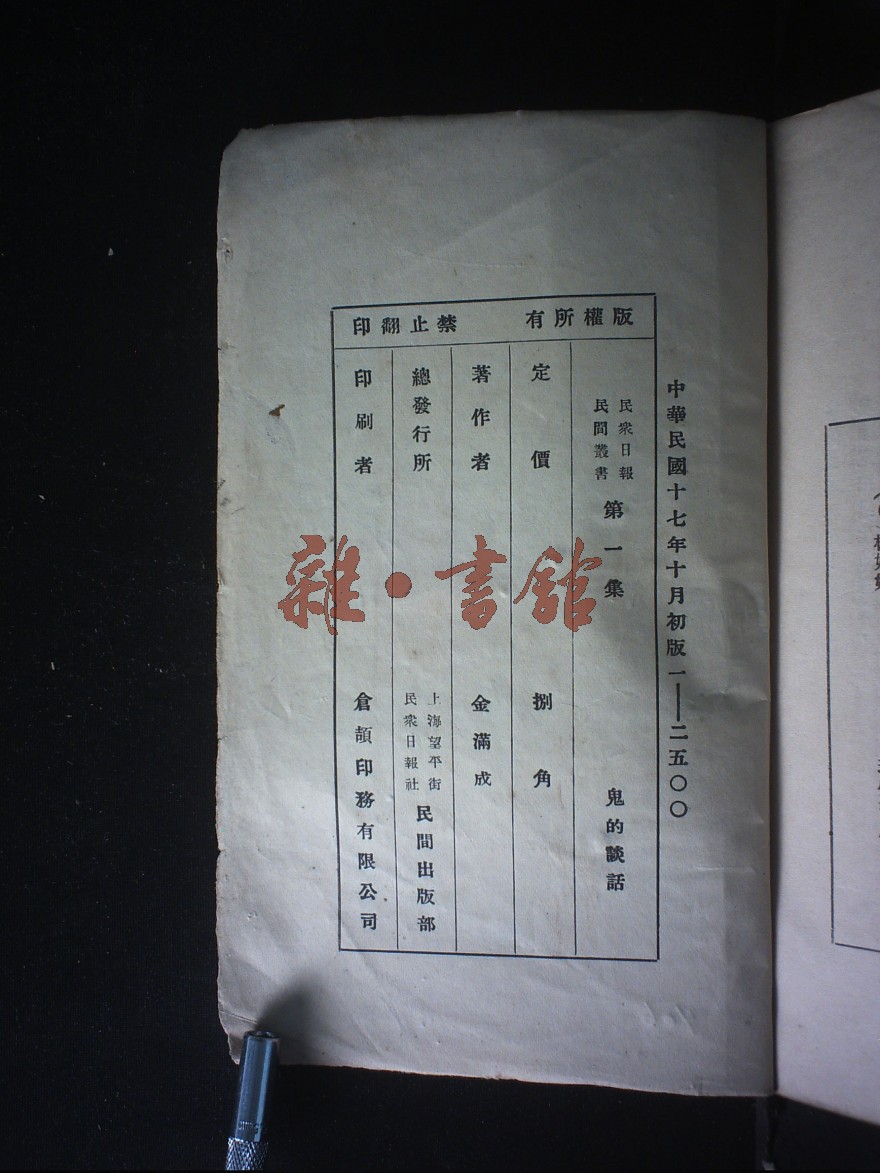 中華民國十七年十月初版一——二五〇〇
版權所有 禁止翻印
民衆日報
民間叢書
第一集 鬼的談話
定價 捌角
著作者 金滿成
總發行所 上海望平街
民衆日報社
民間出版部
印刷者 倉頡印務有限公司
雜·書館